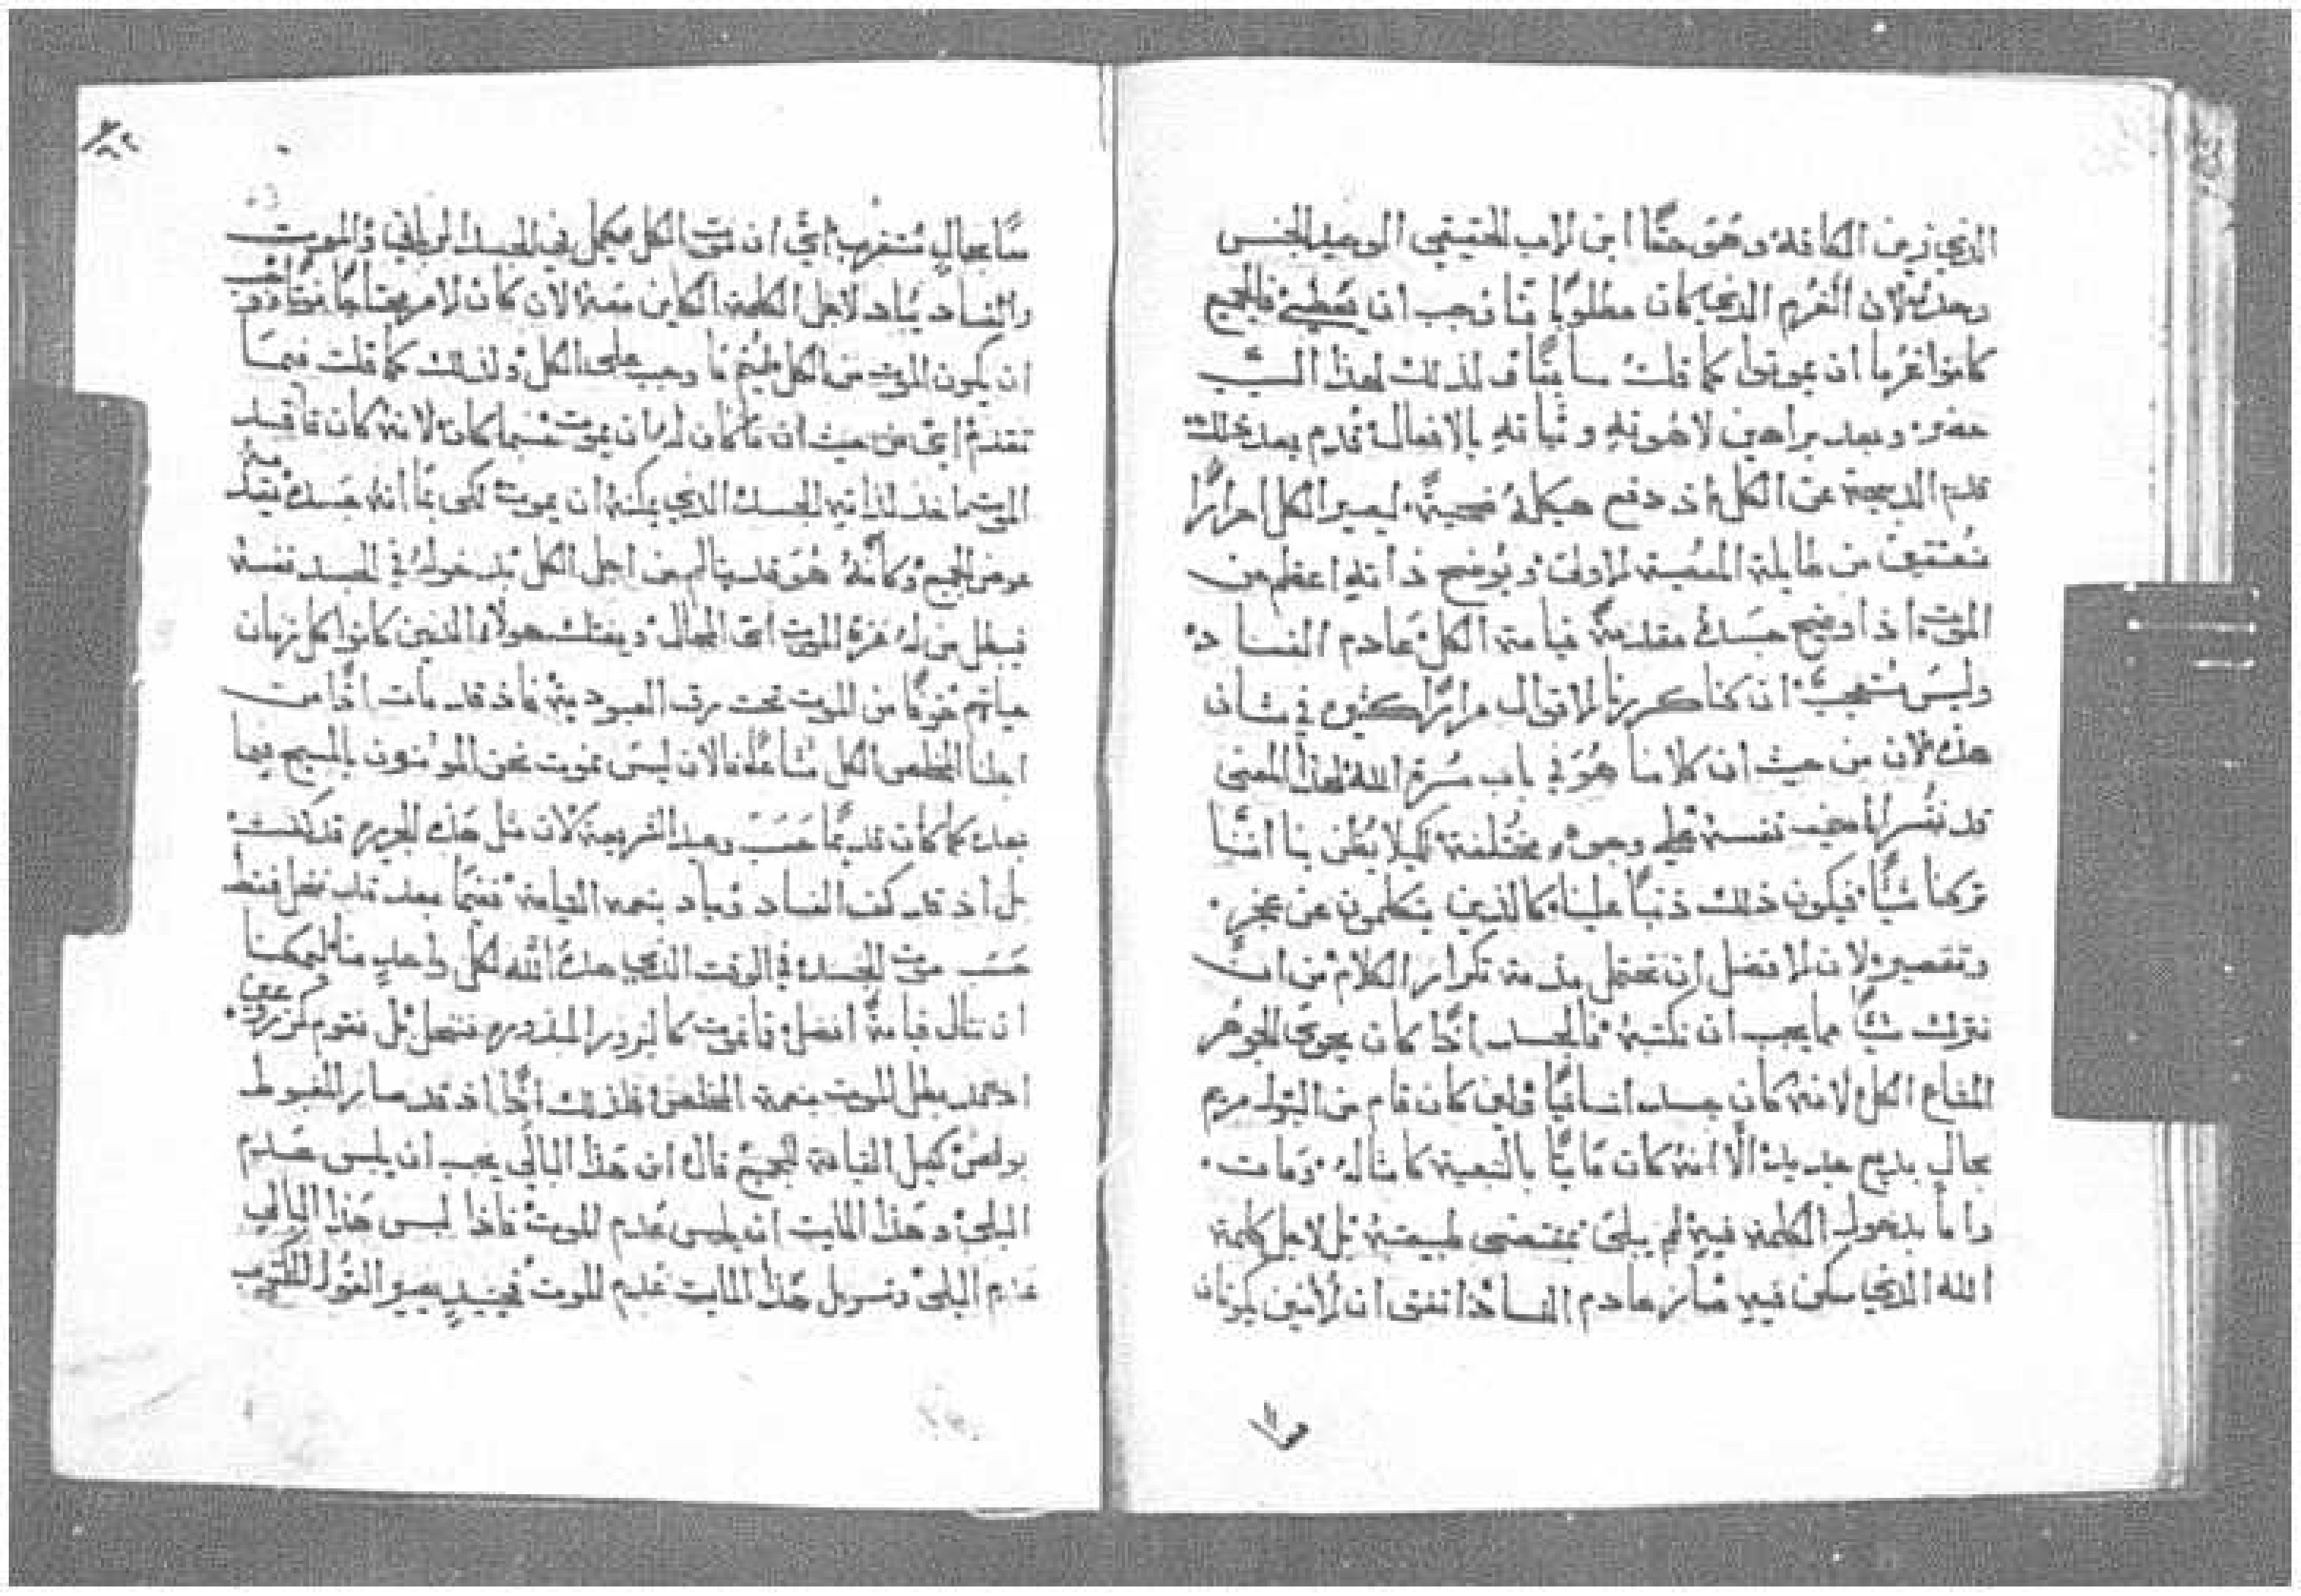 الذي زين الكافة وهو حقًا ابن الاب الحقيقي الوحيد الجنس
وحده لان الغرم الذي كان مطلوبًا منا وجب ان فالجميع
كانوا غرما ان يموتوا كما قلت سابقًا فلذلك لهذا السبب
حضر وبعد براهين لاهوته وثباته بالافعال قدم بعد ذلك
قدم الذبيحة عن الكل اذ دفع هيكله ضحيةً ليصير الكل احرارًا
من طايلة المعصية الاولى ويوضح ذاته اعظم من
الموت اذا اوضح جسده مقدمة قيامة الكل عادم الفساد
وليس ان كنا كررنا الاقوال مرارًا كثيرة في شان
هذه لان من حيث ان كلامنا هو في باب مسرة الله لهذا المعنى
قد نفسر المعنى نفسه على وجوه مختلفة كيلا يظن بنا اننا
تركنا شيًا فيكون ذلك ذنبًا علينا كالذين يتكلمون عن عجز
وتقصير لان الافضل ان نحتمل مذمة تكرار الكلام من ان
نترك شيًا مما يجب ان نكتبه فالجسد اذًا كان يحوي الجوهر
المشاع الكل لانه كان جسد انسانيًا ولين كان قام من البتول مريم
بحال بديع جديد الا انه كان مايتًا بالتبعية كامثاله ومات
واما بدخول الكلمة فيه لم يبلى بمقتضى طبيعته بل لاجل كلمة
الله الذي سكن فيه صار عادم الفساد فاتفق ان الاثنين يكونان
معًا بحال مستغرب اي ان موت الكل مكمل في الجسد الرباني والموت
والفساد يباد لاجل الكلمة الكاين معه لان كان الامر محتاجًا
ان يكون الموت من الكل ليتم ما وجب على الكل ولذلك كما قلت فيما
تقدم اي من حيث ان ما كان له ان يموت حسبما كان لانه كان فاقد
الموت اخذ لذاته الجسد الذي يمكنه ان يموت لكي بما انه جسده يقدمه
عوض الجميع وكانه هو قد يتالم من اجل الكل بدخوله في الجسد نفسه
فيبطل من له عزة الموت اي المحال ويعتق هولاء الذين كانوا كل زمان
حياتهم خوفًا من الموت تحت رق العبودية فاذ قد مات اذًا من
اجلنا المخلص الكل مشاعًا فالان ليس نموت نحن المومنون بالمسيح فيما
بعد كما كان قديمًا حسب وعيد الشريعة لان مثل هذه الجريرة قد كفت
بل اذ قد كف الفساد وباد بنعمة القيامة ففيما بعد قد ننحل فقط
حسب موت الجسد في الوقت الذي حده الله لكل واحدٍ منا ليمكننا
ان ننال قيامةً افضل فانموت كالبزور المبذورة فننحل بل نقوم كزروع
اذ قد بطل الموت بنعمة المخلص فلذلك اذًا اذ قد صار المغبوط
بولص كفيل القيامة للجميع قال ان هذا البالي يجب ان يلبس عدم
البلى وهذا المايت ان يلبس عدم الموت فاذا لبس هذا البالي
عدم البلى وتسربل هذا المايت عدم الموت فحينيذٍ يصير القول المكتوب